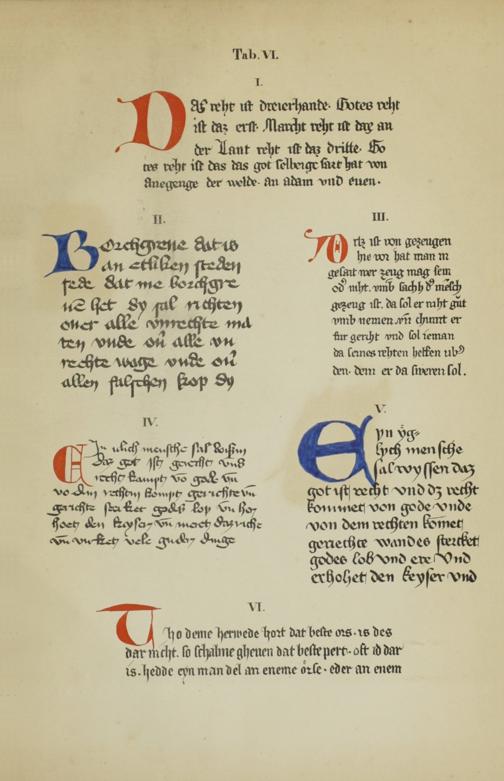 Tab. VI.
I.
Das reht ist dreierhande. Gotes reht
ist daz erst. Marcht reht ist daz an
der Lant reht ist daz dritte. Go
tes reht ist das das got selberge hat von
anegenge der welde. an adam vnd euen.
II.
Borchgreue dat is
an etliken steden
rede dat me borchgre
uē het dy sal richten
ouer alle vnrechte ma
ten vnde oū alle vn
rechte wage vnde oū
allen falschen kop dy
III.
Ditz ist von gezeugen
hie vor hat man in
gesait wer zeug mag sein
od' niht. vmb sachh d' mēsch
gezeug ist. da sol er raht gūt
vmb nemen. vn̄ chumt er
fur gericht vnd sol ieman
da seines rehten helfen ub'
den. dem er da sweren sol.
IV.
Ein ielich mensche sal
das got ist gerecht vnd
recht kumpt vō gode vn̄
vō dem rechtin kompt gerichte vn̄
gerichte sterket godis lop vn̄
den keyser vn̄
vn̄ vele guder dinge
V.
Eyn yg-
lych mensche
sal wyssen daz
got ist recht vnd dz recht
kommet von gode vnde
von dem rechten kōmet
geriechte wandes stercket
godes lob vnd ere Vnd
erhohet den keyser vnd
VI.
Tho deme herwede hort dat beste ors. is des
dar nicht. so schalme gheuen dat beste pert. oft id dar
is. hedde eyn man del an eneme örse. eder an enem